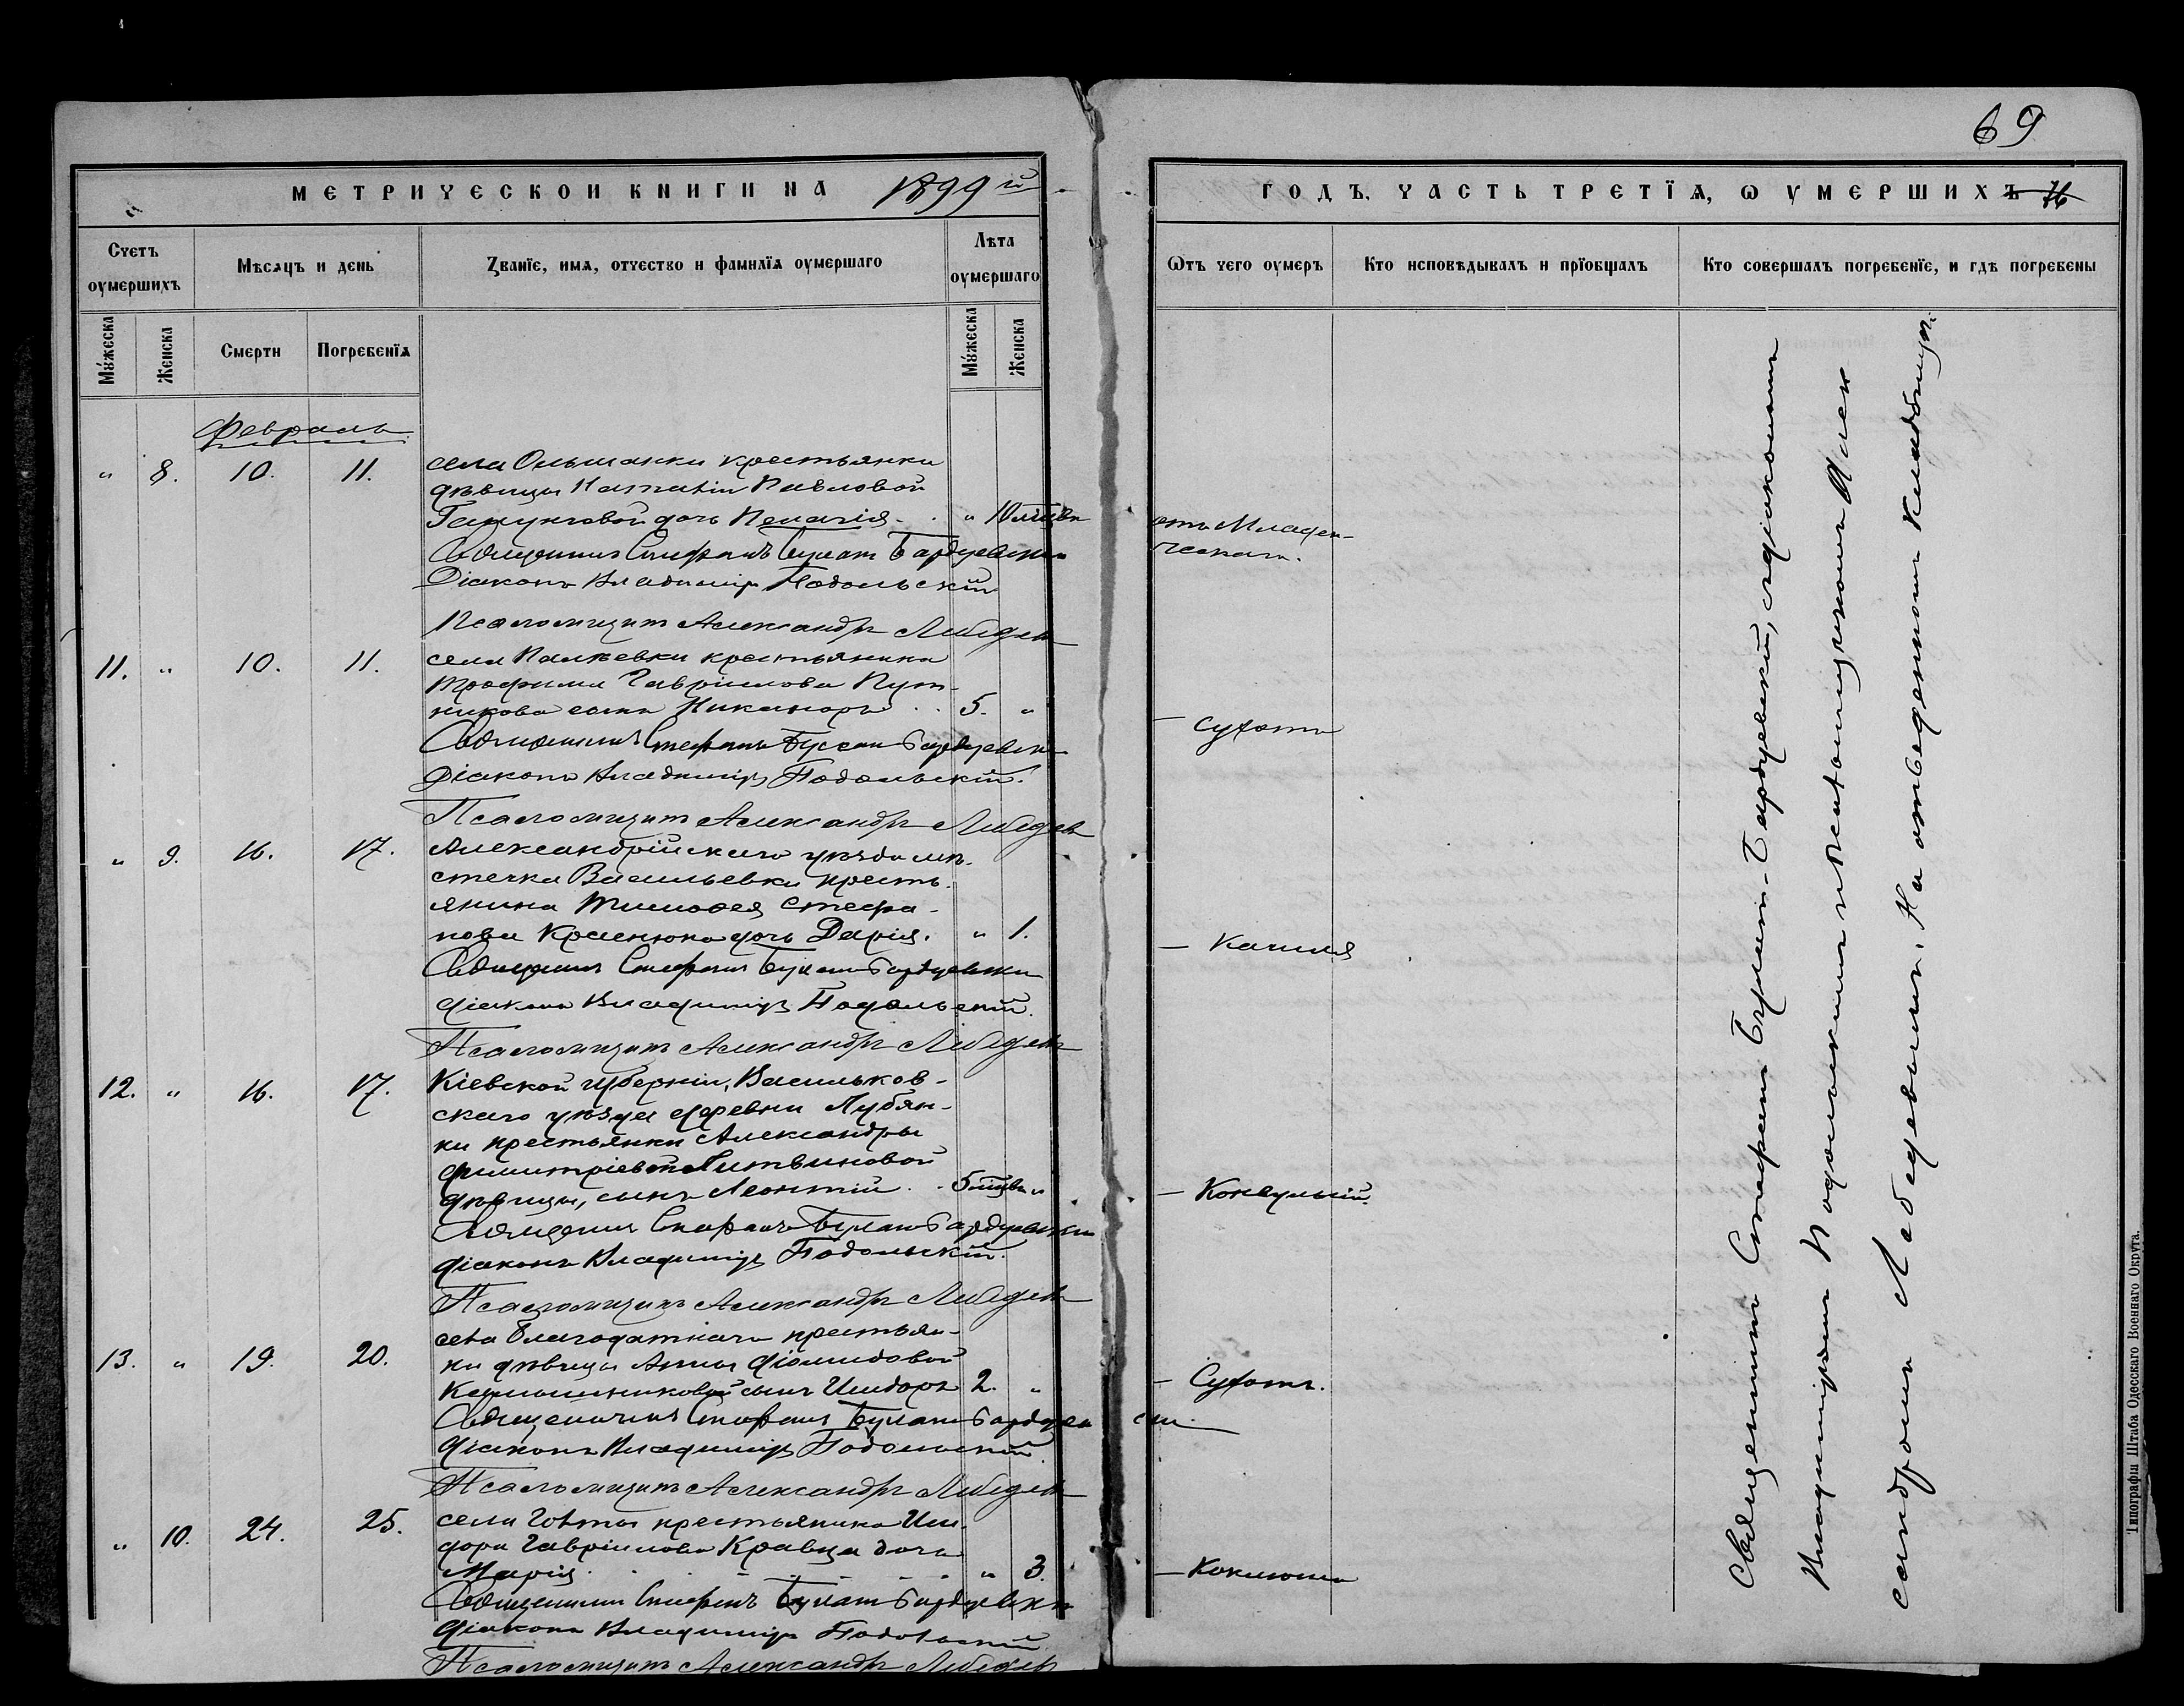 69
МЕТРИЧЕСКОЙ КНИГИ НА 1899й
ГОДЪ, ЧАСТЬ ТРЕТЇѦ, Ѡ УМЕРШИХЪ
Счетъ оумершихъ
Мѣсѧцъ и день
Званїе, имѧ, отчество и фамилїѧ оумершаго
Лѣта оумершаго
Ѿтъ чего оумеръ
Кто исповѣдывалъ и прїобщалъ
Кто совершалъ погребенїе, и гдѣ погребены
Мужеска
Женска
Смерти
Погребенїѧ
Мужеска
Женска
Февраль
" 8. 10. 11. села Ольшанки крестьянки
дѣвицы Павловой
дочь Пелагія " 10 мѣсяц. отъ Младен-
ческой.
Священникъ Стефанъ Булатъ Бардуевскій
Діаконъ Владиміръ Подольскій
Псаломщикъ Александръ Лебедевъ
11. " 10. 11. села крестьянина
Трофима Гавріилова Пут-
никова сынъ Никаноръ 5. " — сухоты
Священникъ Стефанъ Булатъ Бардуевск
Діаконъ Владиміръ Подольскій.
Псаломщикъ Александръ Лебедевъ
" 9. 16. 17. Александрійскаго уѣзда мѣ-
стечка Васильевки кресть-
янина Тимоѳея Стефа-
нова Краснюка дочь Дарія. " 1. — Кашля
Священникъ Стефанъ Булатъ Бардуевскій
діаконъ Владиміръ Подольскій.
Псаломщикъ Александръ Лебедевъ
12. " 16. 17. Кіевской губерніи, Васильков-
скаго уѣзда деревни Лубян-
ки крестьянки Александры
Димитріевой Литвиновой
дѣвицы, сынъ Леонтій 5 мѣсяц. " — Конвульсій.
Священникъ Стефанъ Булатъ Бардуевскій
діаконъ Владиміръ Подольскій.
Псаломщикъ Александръ Лебедевъ
13. " 19. 20. села Благодатнаго крестьян-
ки дѣвицы Анны Діомидовой
сынъ Исидоръ 2. " — Сухоты.
Священникъ Стефанъ Булатъ Бардуев ски.
діаконъ Владиміръ Подольскій
Псаломщикъ Александръ Лебедевъ
" 10. 24. 25. села крестьянина Иси-
дора Гавріилова Кравца дочь
Марія " 3. — Коклюша
Священникъ Стефанъ Булатъ Бардуевскій
діаконъ Владиміръ Подольскій
Псаломщикъ Александръ Лебедевъ
Священникъ Стефанъ Булатъ-Бардуевскій, съ діакономъ
Владиміромъ Подольскимъ и псаломщикомъ Алек
сандромъ Лебедевымъ. На отведенномъ кладбищѣ.
Типографія Штаба Одесскаго Военнаго Округа.